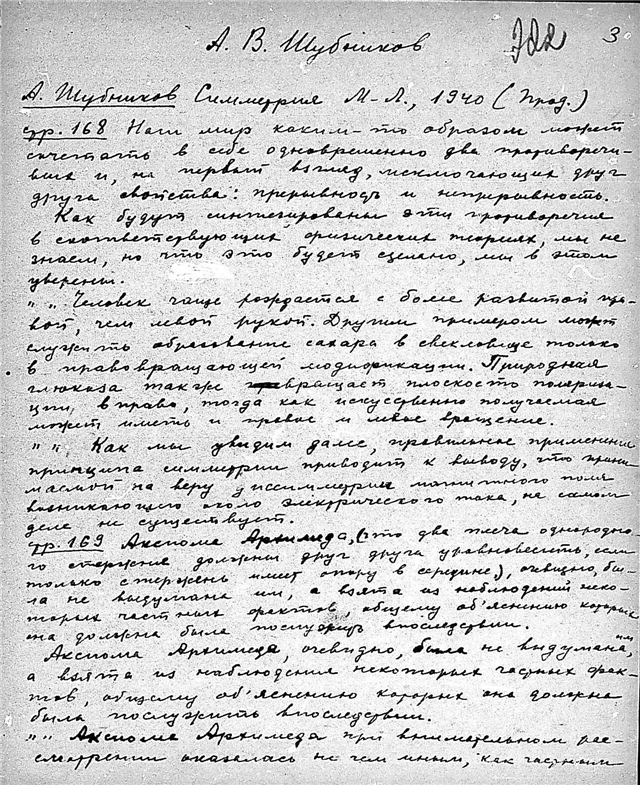 3
А. В. Шубников
А. Шубников Симметрия М-Л., 1940 (Прод.)
стр. 168 Наш мир каким-то образом может
сочетать в себе одновременно два противоречи-
вых и, на первый взгляд, исключающих друг
друга свойства: прерывность и непрерывность.
Как будут синтезированы эти противоречия
в соответствующих физических теориях, мы не
знаем, но что это будет сделано, мы в этом
уверены.
" " Человек чаще рождается с более развитой пра-
вой, чем левой рукой. Другим примером может
служить образование сахара в свекловице только
в правовращающей модификации. Природная
глюкоза также вращает плоскость поляриза-
ции вправо, тогда как искусственно получаемая
может иметь и правое и левое вращение.
" " Как мы увидим далее, правильное применение
принципа симметрии приводит к выводу, что прини-
маемой на веру диссимметрии магнитного поля
возникающего около электрического тока, на самом
деле не существует.
стр. 169 Аксиома Архимеда, (что два плеча однородно-
го стержня должны друг друга уравновесить, если
только стержень имеет опору в середине), очевидно, бы-
ла не выдумана им, а взята из наблюдений неко-
торых частных фактов, общему об'яснению которых
она должна была послужить впоследствии.
Аксиома Архимеда, очевидно, была не выдумана им,
а взята из наблюдения некоторых частных фак-
тов, общему об'яснению которых она должна
была послужить впоследствии.
" " Аксиома Архимеда при внимательном рас-
смотрении оказалась не чем иным, как частным